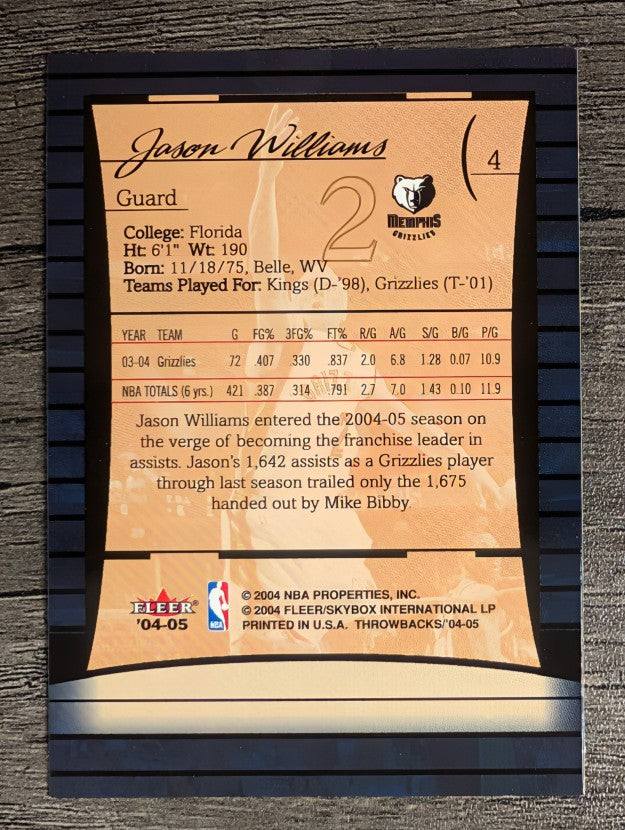 Jason Williams
4
Guard
2
MEMPHIS
GRIZZLIES
College: Florida
Ht: 6'1" Wt: 190
Born: 11/18/75, Belle, WV
Teams Played For: Kings (D-'98), Grizzlies (T-'01)
YEAR TEAM G FG% 3FG% FT% R/G A/G S/G B/G P/G
03-04 Grizzlies 72 .407 .330 .837 2.0 6.8 1.28 0.07 10.9
NBA TOTALS (6 yrs.) 421 .387 .314 .791 2.7 7.0 1.43 0.10 11.9
Jason Williams entered the 2004-05 season on
the verge of becoming the franchise leader in
assists. Jason's 1,642 assists as a Grizzlies player
through last season trailed only the 1,675
handed out by Mike Bibby.
FLEER
'04-05
NBA
© 2004 NBA PROPERTIES, INC.
© 2004 FLEER/SKYBOX INTERNATIONAL LP
PRINTED IN U.S.A. THROWBACKS/'04-05